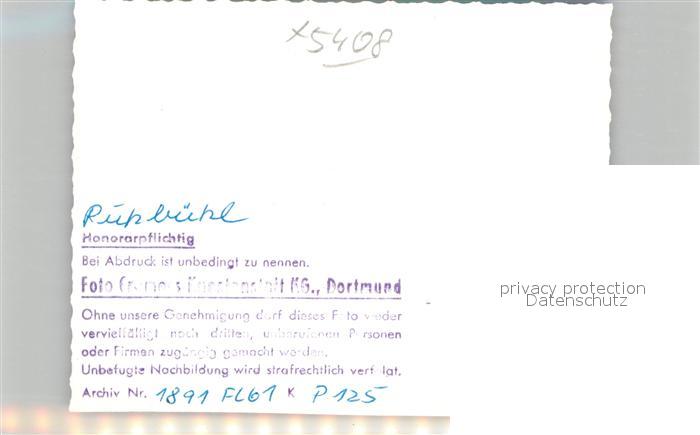 x5408
Honorarpflichtig
Bei Abdruck ist unbedingt zu nennen.
Foto Cramers Kunstanstalt KG., Dortmund
Ohne unsere Genehmigung darf dieses Foto weder
vervielfältigt noch dritten, unberufenen Personen
oder Firmen zugängig gemacht werden.
Unbefugte Nachbildung wird strafrechtlich verfolgt.
Archiv Nr. 1891 FL61 K P 125
privacy protection
Datenschutz